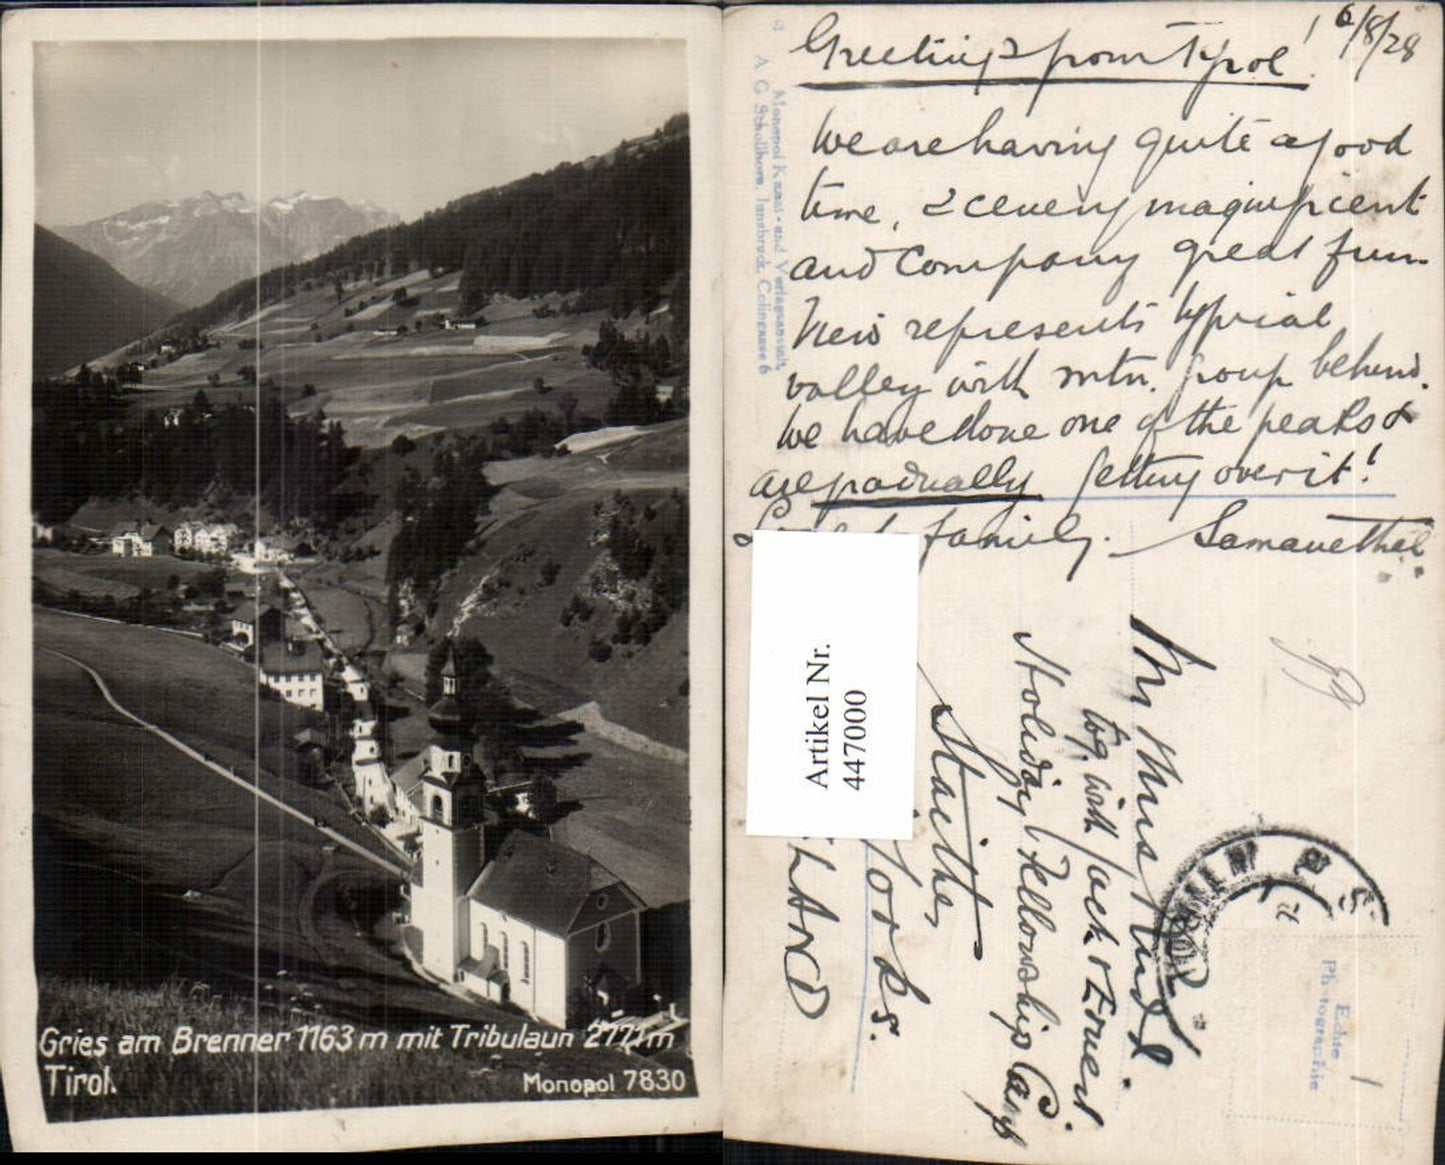 Gries am Brenner 1163 m mit Tribulaun 2771 m
Tirol.
Monopol 7830
Greetings from Tyrol! 16/8/28
We are having quite a good
time, scenery magnificent
and company great fun.
View represents typical
valley with mtn. group behind.
We have done one of the peaks &
are gradually getting over it!
family. Sam and Ethel
Monopol Kunst- und Verlagsanstalt
A G Schollhorn, Innsbruck, Colingasse 6
Artikel Nr.
447000
Mr & Mrs
tog. with Jack & Ernest.
Holiday Fellowship Camp
Staithes
Yorks.
LAND
Echte
Photographie